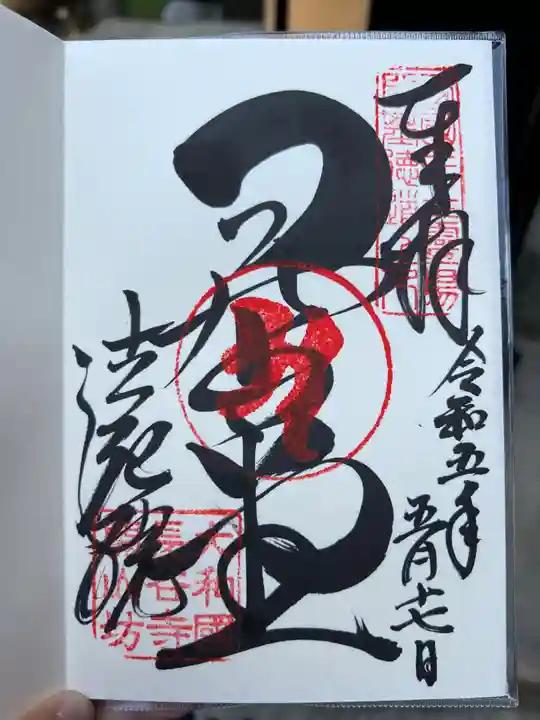 奉拝
令和五年
五月十七日
開山堂
法起院
大和國
長谷寺
開山坊